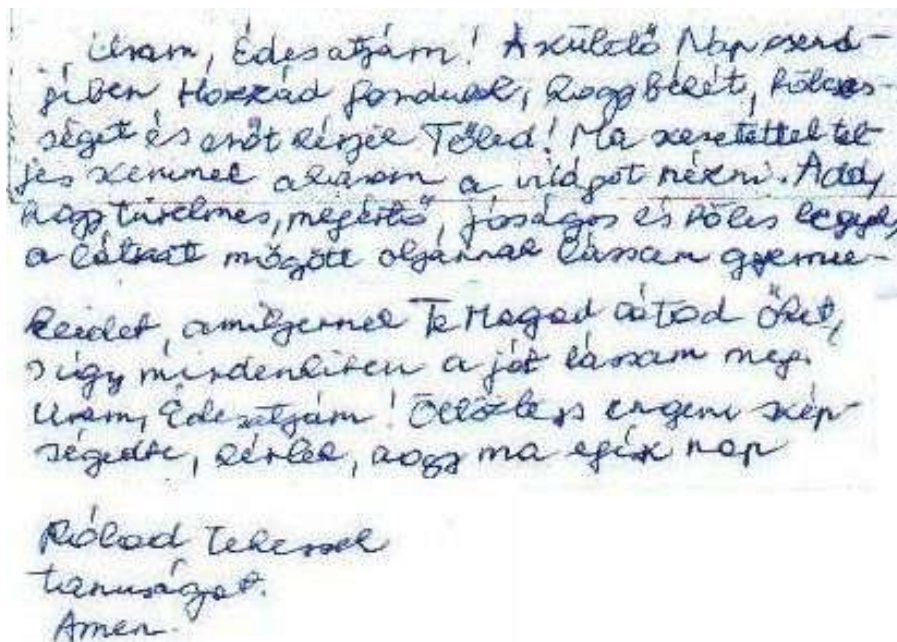 Uram, Édesatyám! A születő Nap csend-
jében Hozzád fordulok, hogy békét, bölcses-
séget és erőt kérjek Tőled! Ma szeretettel tel
jes szemmel akarom a világot nézni. Add,
hogy türelmes, megértő, jóságos és bölcs legyek,
a látszat mögött olyannak lássam gyerme-
keidet, amilyennek Te Magad látod őket,
s így mindenkiben a jót lássam meg.
Uram, Édesatyám! Öltöztess engem szép-
ségedbe, kérlek, hogy ma egész nap
Rólad tehessek
tanuságot.
Amen.